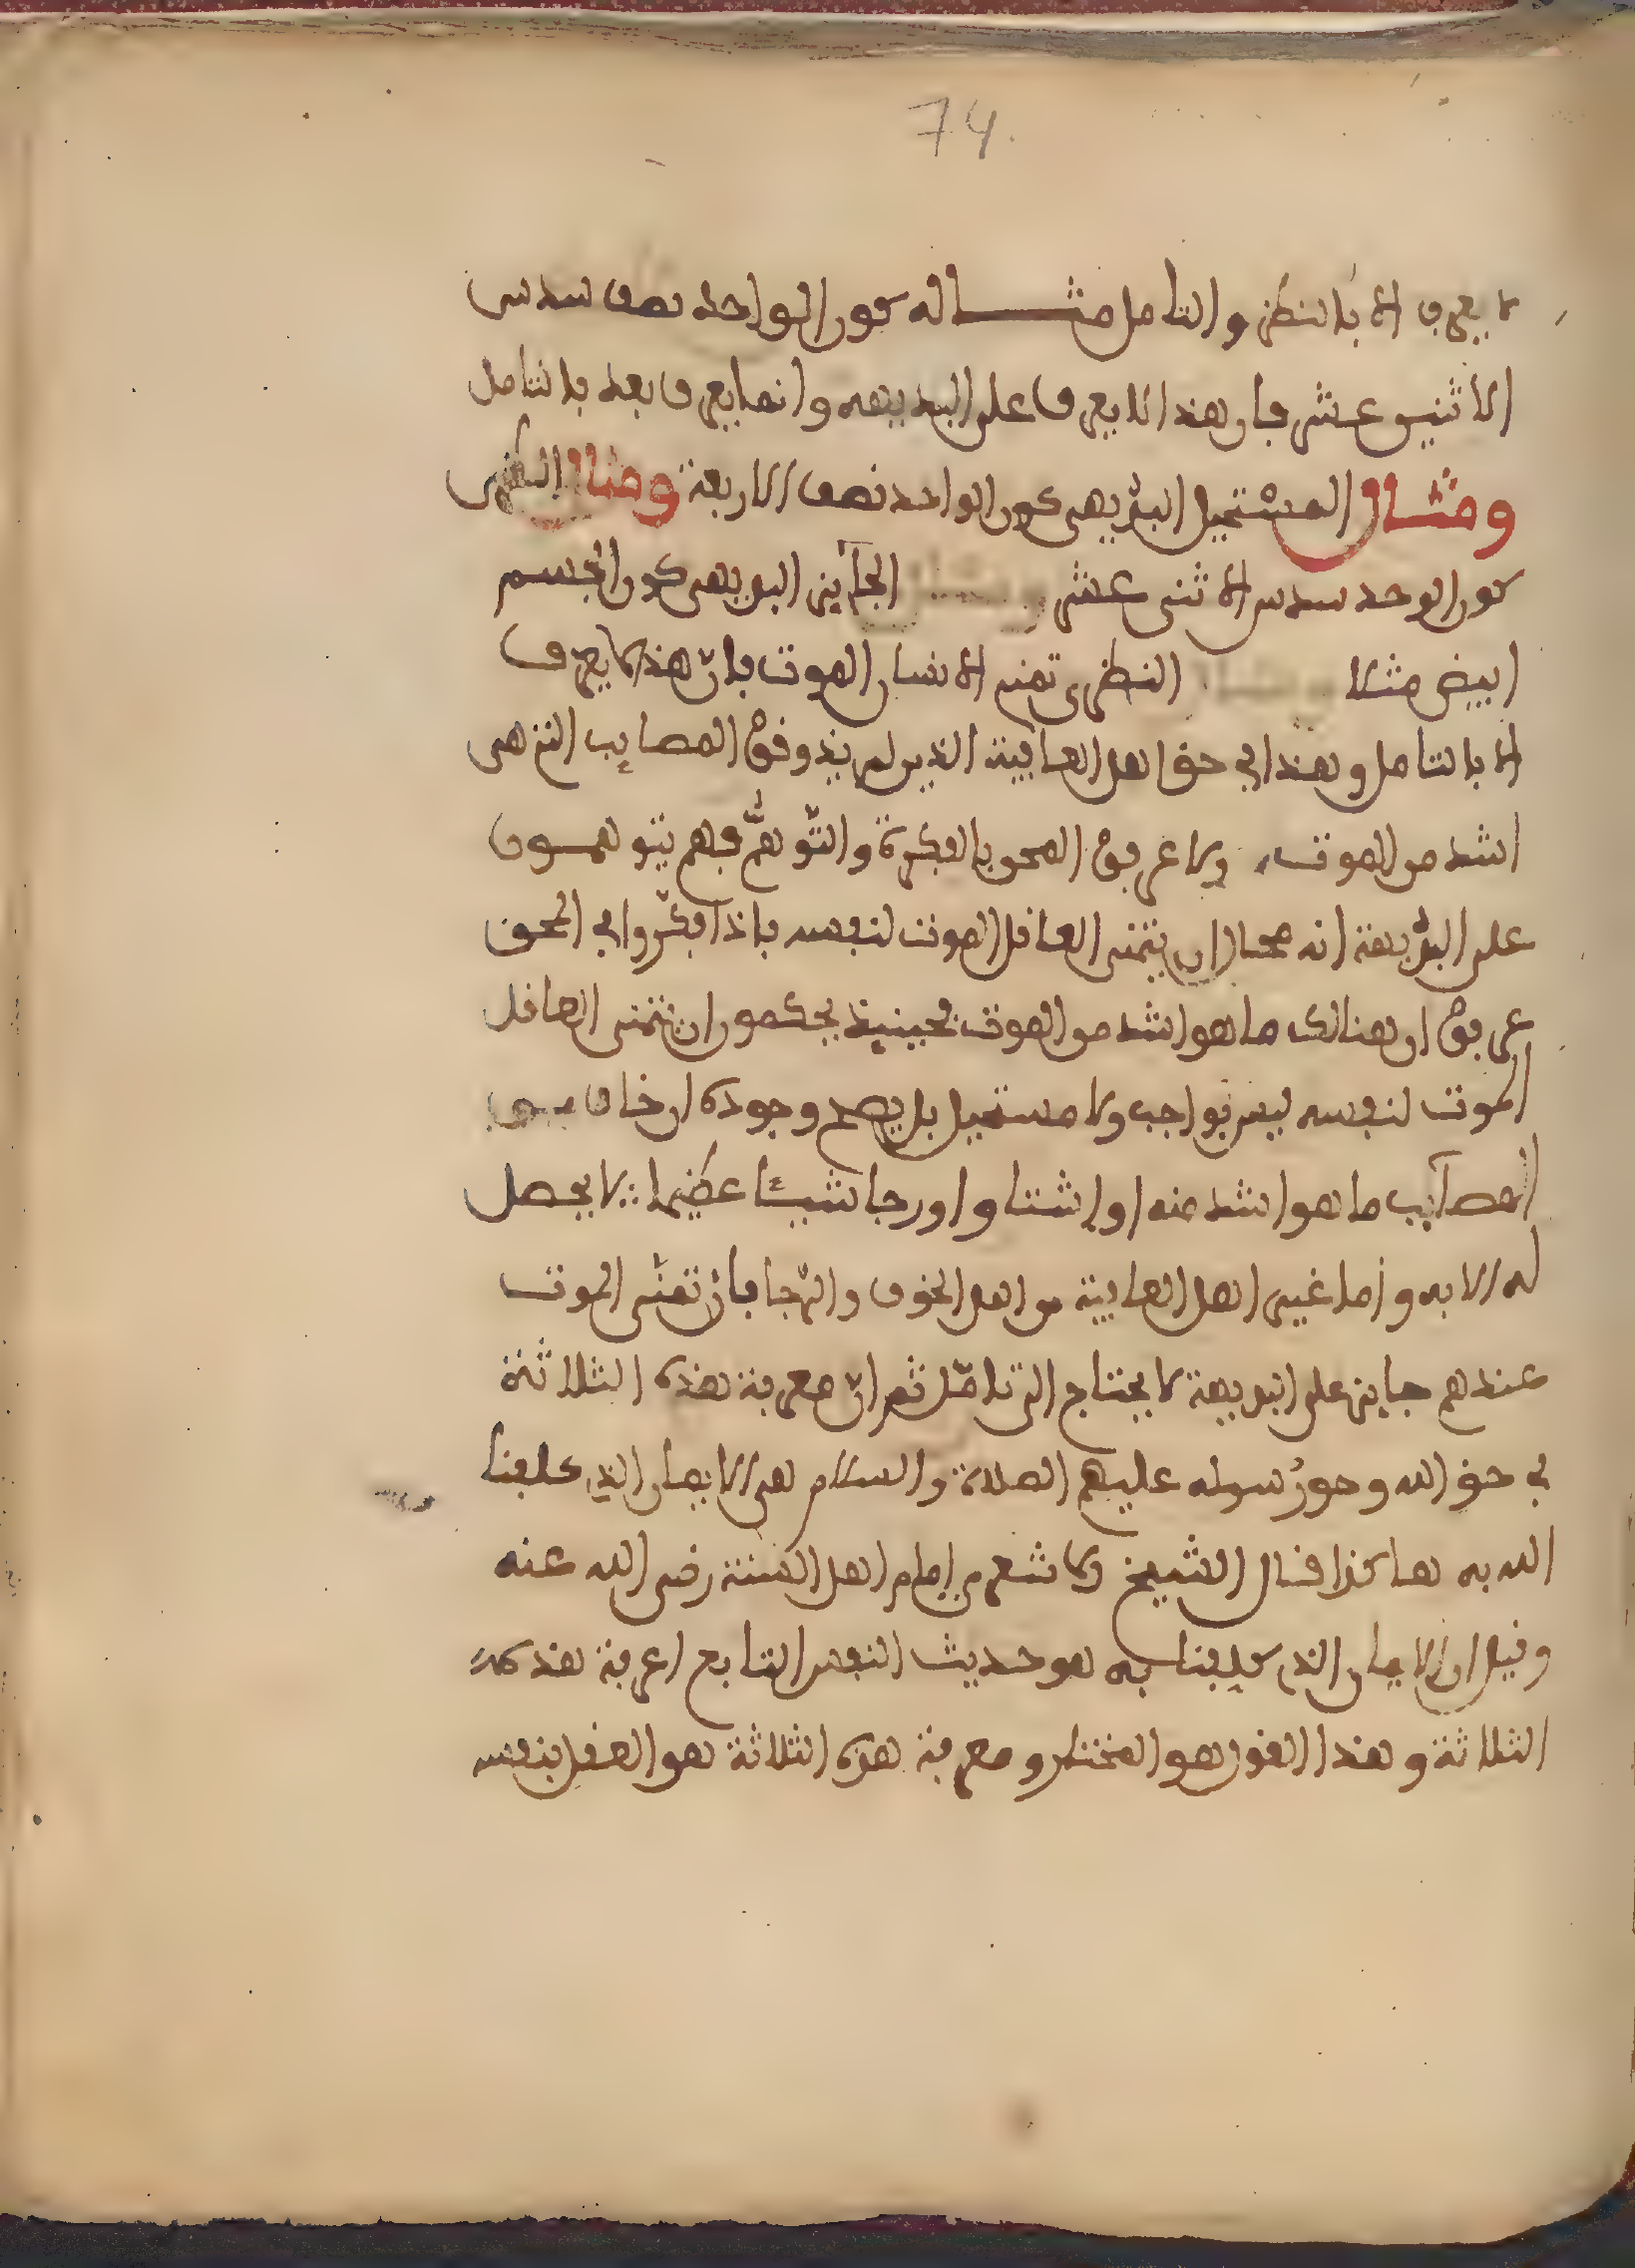 74.
لا يعرف الا بالنظر والتامل مثاله كون الواحد نصف سدس
الاثنين عشر فان هذا لا يعرف على البديهه وانما يعرف بعد بالتامل
ومثال المستحيل البديهى كون الواحد نصف الاربعة ومثال النظرى
كون الوحد سدس الاثنى عشر ومثال الجآيز البديهى كون الجسم
ابيض مثلا ومثال النظرى تمنى الانسان الموت فانّ هذا لا يعرف
الا بالتامل وهذا في حق اهل العافية الذين لم يذوقوْا المصايب التى هى
اشد من الموت ولا عرفوْا المحن بالفكرة والتّوهّم فهم يتوهمون
على البديهة انه محال ان يتمنى العاقل الموت لنفسه فاذا فكّروا في الحق
عرفوْا ان هنالك ما هو اشد من الموت فحينيذ يحكمون ان تمنى العاقل
الموت لنفسه ليس بواجب ولا مستحيل بل يصح وجوده ان خاف من
المصآيب ما هو اشد منه او اشتاو او رجا شيئا عظيما لا يحصل
له الا به واما غير اهل العافية من اهل الخوف والرّجا فانّ تمنّى الموت
عندهم جايز على البديهة لا يحتاج الى تامّل ثم انّ معرفة هذه الثلاثة
في حق الله وحق رسوله عليهم الصلاة والسلام هى الايمان الذى كلفنا
الله به هاكذا قال الشيخ الاشعرى امام اهل السنة رضى الله عنه
وقيل ان الايمان الذى كلفنا به هو حديث النفس التابع لمعرفة هذه
الثلاثة وهذا القول هو المختار ومعرفة هذه الثلاثة هو العقل بنفسه